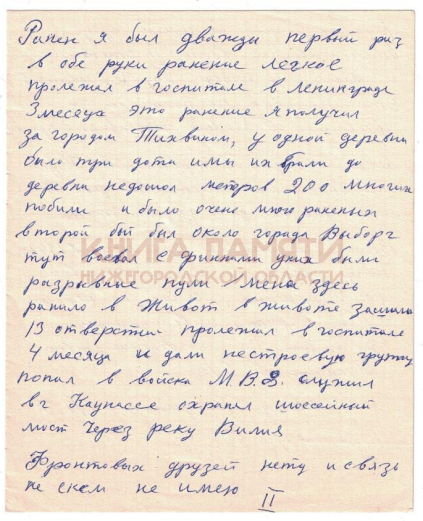 Ранен я был дважды первый раз
в обе руки ранение легкое
пролежал в госпитале в Ленинграде
3 месеца это ранение я получил
за городом Тихвином, у одной деревни
было три дота и мы их брали до
деревни недошол метров 200 многих
побили и было очень много раненых
второй был около города Выборг
тут воевал с финнами у них были
разрывные пули меня здесь
ранило в живот в животе зашили
13 отверстий пролежал в госпитале
4 месяца и дали нестроевую группу
попал в войска М.В.Д. служил
в г Каунассе охранял шоссейный
мост через реку Вилия
Фронтовых друзей нету и связь
не с кем не имею
II
КНИГА ПАМЯТИ
НИЖЕГОРОДСКОЙ ОБЛАСТИ